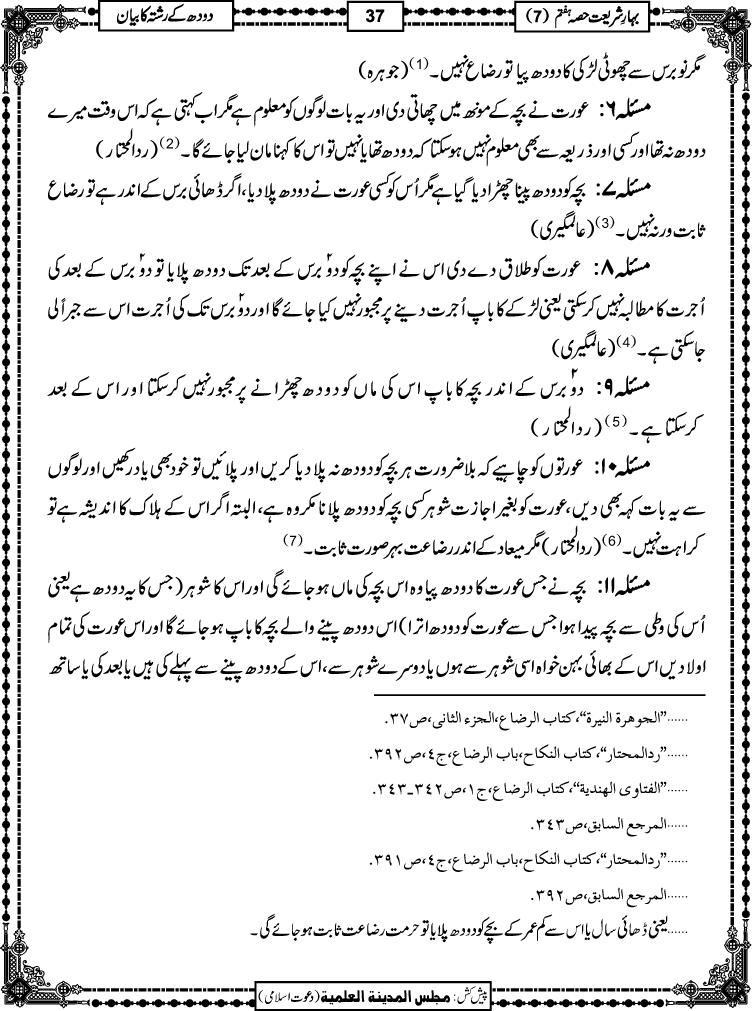 بہارِ شریعت حصہ ہفتم (7)
37
دودھ کے رشتہ کا بیان
مگر نو برس سے چھوٹی لڑکی کا دودھ پیا تو رضاع نہیں۔(1) (جوہرہ)
مسئلہ ۶: عورت نے بچہ کے مونھ میں چھاتی دی اور یہ بات لوگوں کو معلوم ہے مگر اب کہتی ہے کہ اس وقت میرے
دودھ نہ تھا اور کسی اور ذریعہ سے بھی معلوم نہیں ہوسکتا کہ دودھ تھا یا نہیں تو اس کا کہنا مان لیا جائے گا۔(2) (ردالمحتار)
مسئلہ ۷: بچہ کو دودھ پینا چھڑا دیا گیا ہے مگر اُس کو کسی عورت نے دودھ پلا دیا، اگر ڈھائی برس کے اندر ہے تو رضاع
ثابت ورنہ نہیں۔(3) (عالمگیری)
مسئلہ ۸: عورت کو طلاق دے دی اس نے اپنے بچہ کو دو۲ برس کے بعد تک دودھ پلایا تو دو۲ برس کے بعد کی
اُجرت کا مطالبہ نہیں کرسکتی یعنی لڑکے کا باپ اُجرت دینے پر مجبور نہیں کیا جائے گا اور دو۲ برس تک کی اُجرت اس سے جبراً لی
جاسکتی ہے۔(4) (عالمگیری)
مسئلہ ۹: دو۲ برس کے اندر بچہ کا باپ اس کی ماں کو دودھ چھڑانے پر مجبور نہیں کرسکتا اور اس کے بعد
کرسکتا ہے۔(5) (ردالمحتار)
مسئلہ ۱۰: عورتوں کو چاہیے کہ بلاضرورت ہر بچہ کو دودھ نہ پلا دیا کریں اور پلائیں تو خود بھی یاد رکھیں اور لوگوں
سے یہ بات کہہ بھی دیں، عورت کو بغیر اجازت شوہر کسی بچہ کو دودھ پلانا مکروہ ہے، البتہ اگر اس کے ہلاک کا اندیشہ ہے تو
کراہت نہیں۔(6) (ردالمحتار) مگر میعاد کے اندر رضاعت بہرصورت ثابت۔(7)
مسئلہ ۱۱: بچہ نے جس عورت کا دودھ پیا وہ اس بچہ کی ماں ہو جائے گی اور اس کا شوہر (جس کا یہ دودھ ہے یعنی
اُس کی وطی سے بچہ پیدا ہوا جس سے عورت کو دودھ اترا) اس دودھ پینے والے بچہ کا باپ ہو جائے گا اور اس عورت کی تمام
اولادیں اس کے بھائی بہن خواہ اسی شوہر سے ہوں یا دوسرے شوہر سے، اس کے دودھ پینے سے پہلے کی ہیں یا بعد کی یا ساتھ
......”الجوهرة النيرة“، كتاب الرضاع، الجزء الثاني، ص٣٧.
......”ردالمحتار“، كتاب النكاح، باب الرضاع، ج٤، ص٣٩٢.
......”الفتاوى الهندية“، كتاب الرضاع، ج١، ص٣٤٢ـ٣٤٣.
......المرجع السابق، ص٣٤٣.
......”ردالمحتار“، كتاب النكاح، باب الرضاع، ج٤، ص٣٩١.
......المرجع السابق، ص٣٩٢.
......یعنی ڈھائی سال یا اس سے کم عمر کے بچے کو دودھ پلایا تو حرمت رضاعت ثابت ہو جائے گی۔
پیش کش: مجلس المدينة العلمية (دعوت اسلامی)